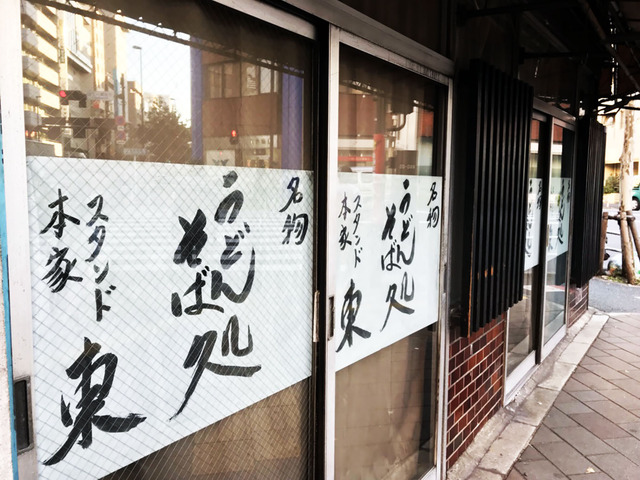 名物
うどん
そば
処
スタンド
本家
東
名物
うどん
そば
処
スタンド
本家
東